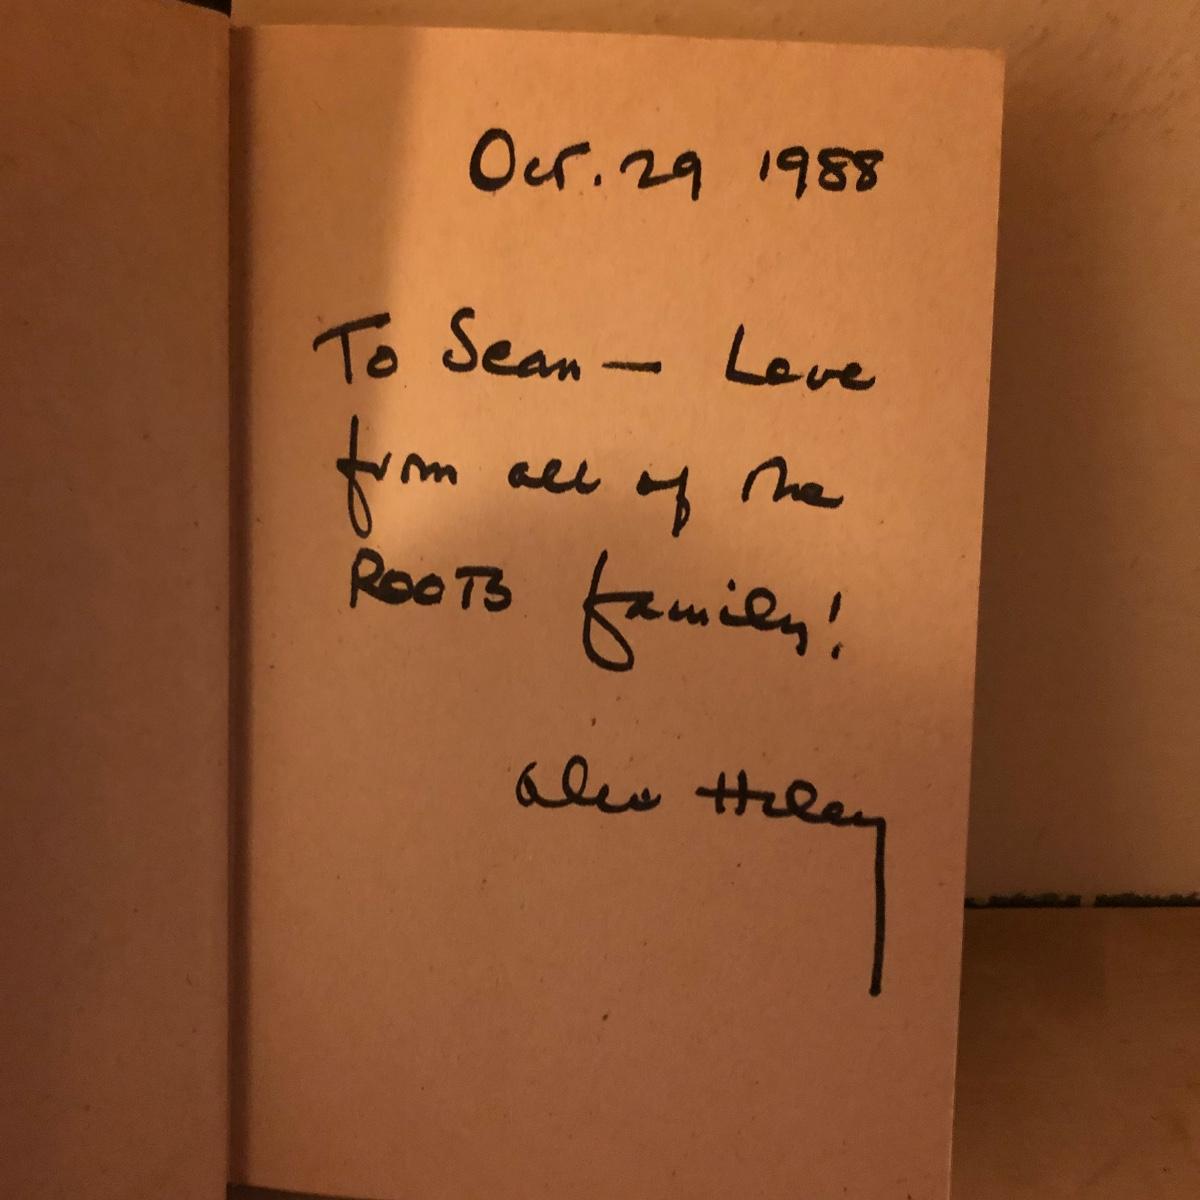 Oct. 29 1988
To Sean — Love
from all of the
ROOTS family!
Alex Haley